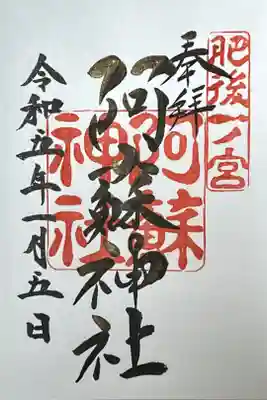 肥後一ノ宮
奉拝
阿蘇神社
阿蘇神社
令和五年一月五日